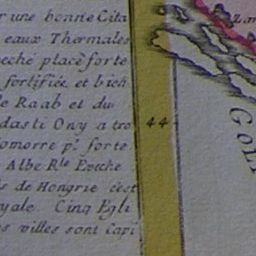 r une bonne Cita
eaux Thermales
eche place forte
fortifiée et bien
e Raab et du
dasti Ony a tro
omorre p.^t forte
Albe R^le Eveche
s de Hongrie c'est
yale. Cinq Egli
s villes sont Capi
44
Zar
GOL